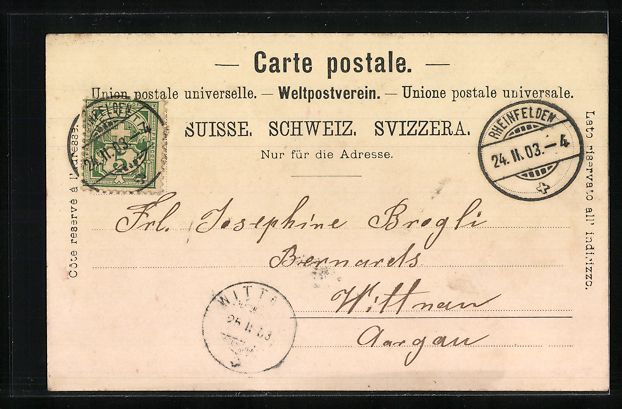 — Carte postale. —
Union postale universelle. — Weltpostverein. — Unione postale universale.
SUISSE. SCHWEIZ. SVIZZERA.
Nur für die Adresse.
Côte réservé à l'adresse.
Lato riservato all' indirizzo.
5
24.II.03.-4
RHEINFELDEN
24.II.03.-4
Frl. Josephine Brogli
Bernards
Wittnau
Aargau
WITT
25 II 03